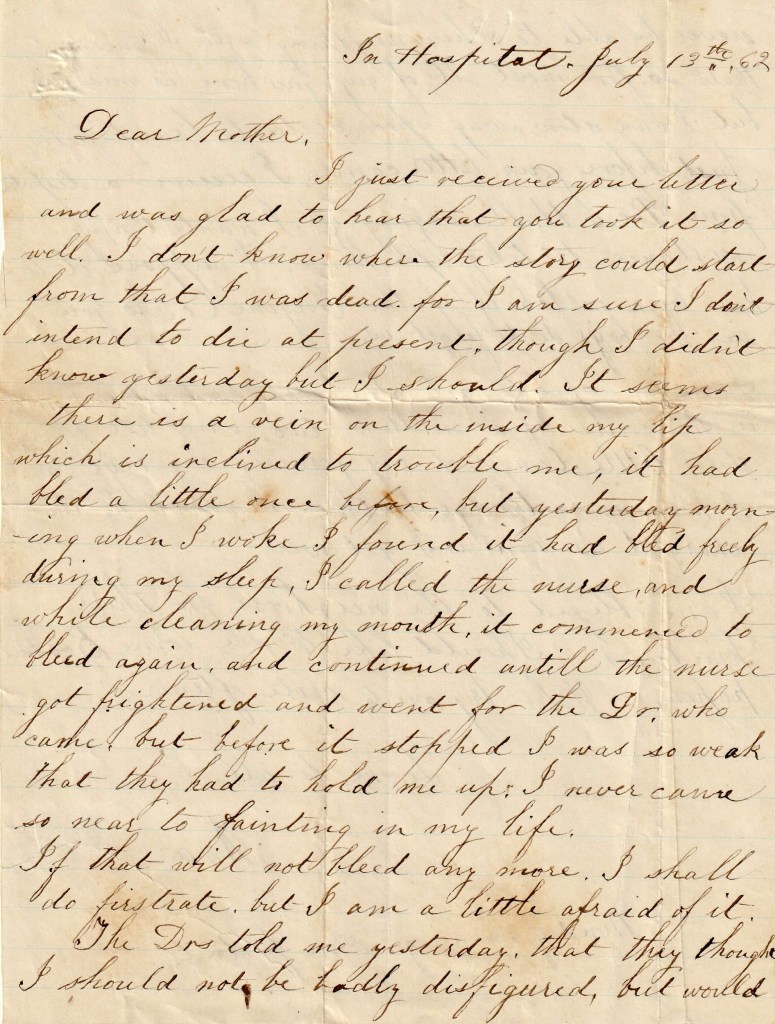 In Hospital. July 13th, 62
Dear Mother,
I just received your letter
and was glad to hear that you took it so
well. I dont know where the story could start
from that I was dead. for I am sure I don't
intend to die at present, though I didn't
know yesterday but I should. It seems
there is a vein on the inside my lip
which is inclined to trouble me, it had
bled a little once before, but yesterday morn-
-ing when I woke I found it had bled freely
during my sleep, I called the nurse, and
while cleaning my mouth, it commenced to
bleed again, and continued untill the nurse
got frightened and went for the Dr. who
came, but before it stopped I was so weak
that they had to hold me up; I never came
so near to fainting in my life.
If that will not bleed any more. I shall
do firstrate. but I am a little afraid of it.
The Drs told me yesterday, that they thought
I should not be badly disfigured, but would